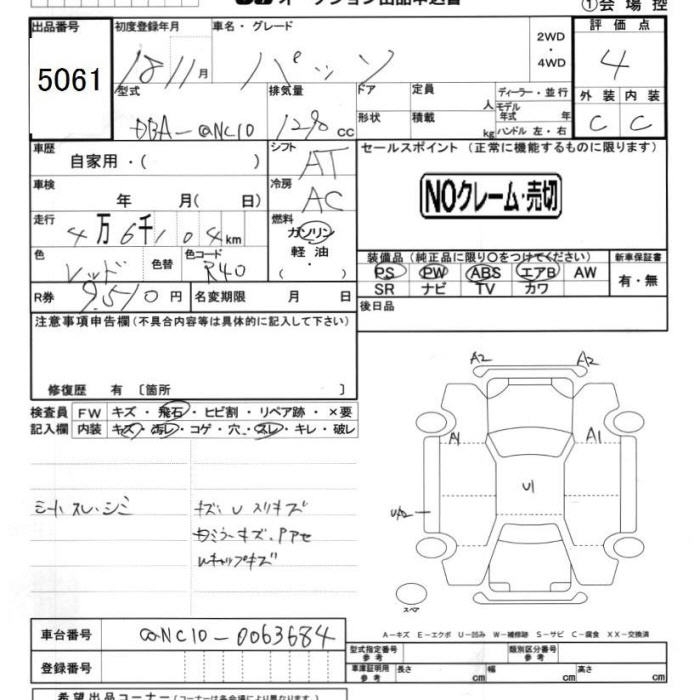 オークション出品申込書
①会場控
出品番号 初度登録年月 車名・グレード 2WD・4WD 評価点
5061 18 11月 パッソ 4
型式 排気量 ドア 定員 人 ディーラー・並行 外装 内装
モデル年式 年
DBA-QNC10 1290cc 形状 積載 kg ハンドル 左・右 C C
車歴 自家用・( ) シフト AT セールスポイント (正常に機能するものに限ります)
車検 年 月( 日) 冷房 AC NOクレーム・売切
走行 4万6千104km 燃料 ガソリン・軽油・( )
色 レッド 色替 色コード R40 装備品(純正品に限り○をつけてください) 新車保証書
PS PW ABS エアB AW 有・無
SR ナビ TV カワ
R券 9,510円 名変期限 月 日 後日品
注意事項申告欄(不具合内容等は具体的に記入して下さい)
修復歴 有 〔箇所 〕
検査員 FW キズ・飛石・ヒビ割・リペア跡・×要
記入欄 内装 キズ・汚レ・コゲ・穴・スレ・キレ・破レ
A2 A2
A1 A1
U1
UA2
シートスレ・シミ キズ、U スリキズ
Wキャップキズ
スペア
A-キズ E-エクボ U-凹み W-補修跡 S-サビ C-腐食 XX-交換済
車台番号 QNC10-0063684
型式指定番号 参考 類別区分番号 参考
登録番号 車庫証明用 参考 長さ cm 幅 cm 高さ cm
希望出品コーナー(コーナーは各会場により異なります)